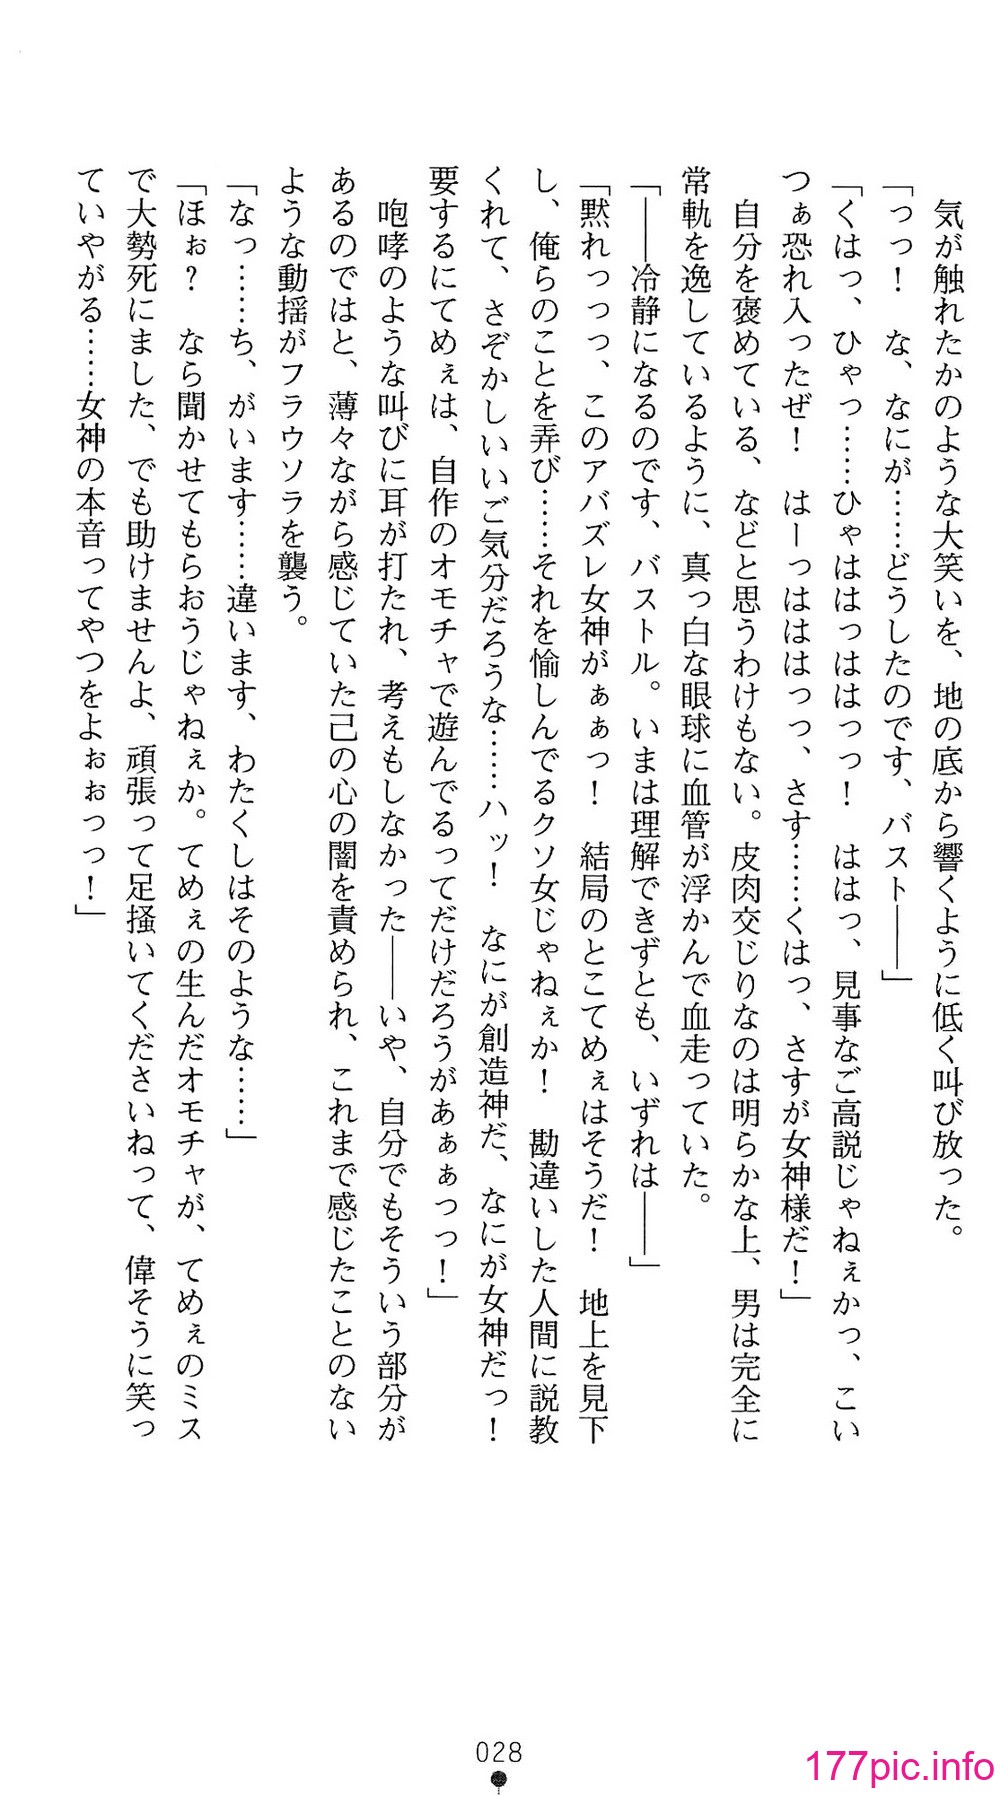 気が触れたかのような大笑いを、地の底から響くように低く叫び放った。
「っっ！　な、なにが……どうしたのです、バスト――」
「くはっ、ひゃっ……ひゃははっははっっ！　ははっ、見事なご高説じゃねぇかっ、こい
つぁ恐れ入ったぜ！　はーっはははっっ、さす……くはっ、さすが女神様だ！」
　自分を褒めている、などと思うわけもない。皮肉交じりなのは明らかな上、男は完全に
常軌を逸しているように、真っ白な眼球に血管が浮かんで血走っていた。
「――冷静になるのです、バストル。いまは理解できずとも、いずれは――」
「黙れっっっ、このアバズレ女神がぁぁっ！　結局のとこてめぇはそうだ！　地上を見下
し、俺らのことを弄び……それを愉しんでるクソ女じゃねぇか！　勘違いした人間に説教
くれて、さぞかしいいご気分だろうな……ハッ！　なにが創造神だ、なにが女神だっ！
要するにてめぇは、自作のオモチャで遊んでるってだけだろうがあぁぁっっ！」
　咆哮のような叫びに耳が打たれ、考えもしなかった――いや、自分でもそういう部分が
あるのではと、薄々ながら感じていた己の心の闇を責められ、これまで感じたことのない
ような動揺がフラウソラを襲う。
「なっ……ち、がいます……違います、わたくしはそのような……」
「ほぉ？　なら聞かせてもらおうじゃねぇか。てめぇの生んだオモチャが、てめぇのミス
で大勢死にました、でも助けませんよ、頑張って足掻いてくださいねって、偉そうに笑っ
ていやがる……女神の本音ってやつをよぉぉっっ！」
028
177pic.info